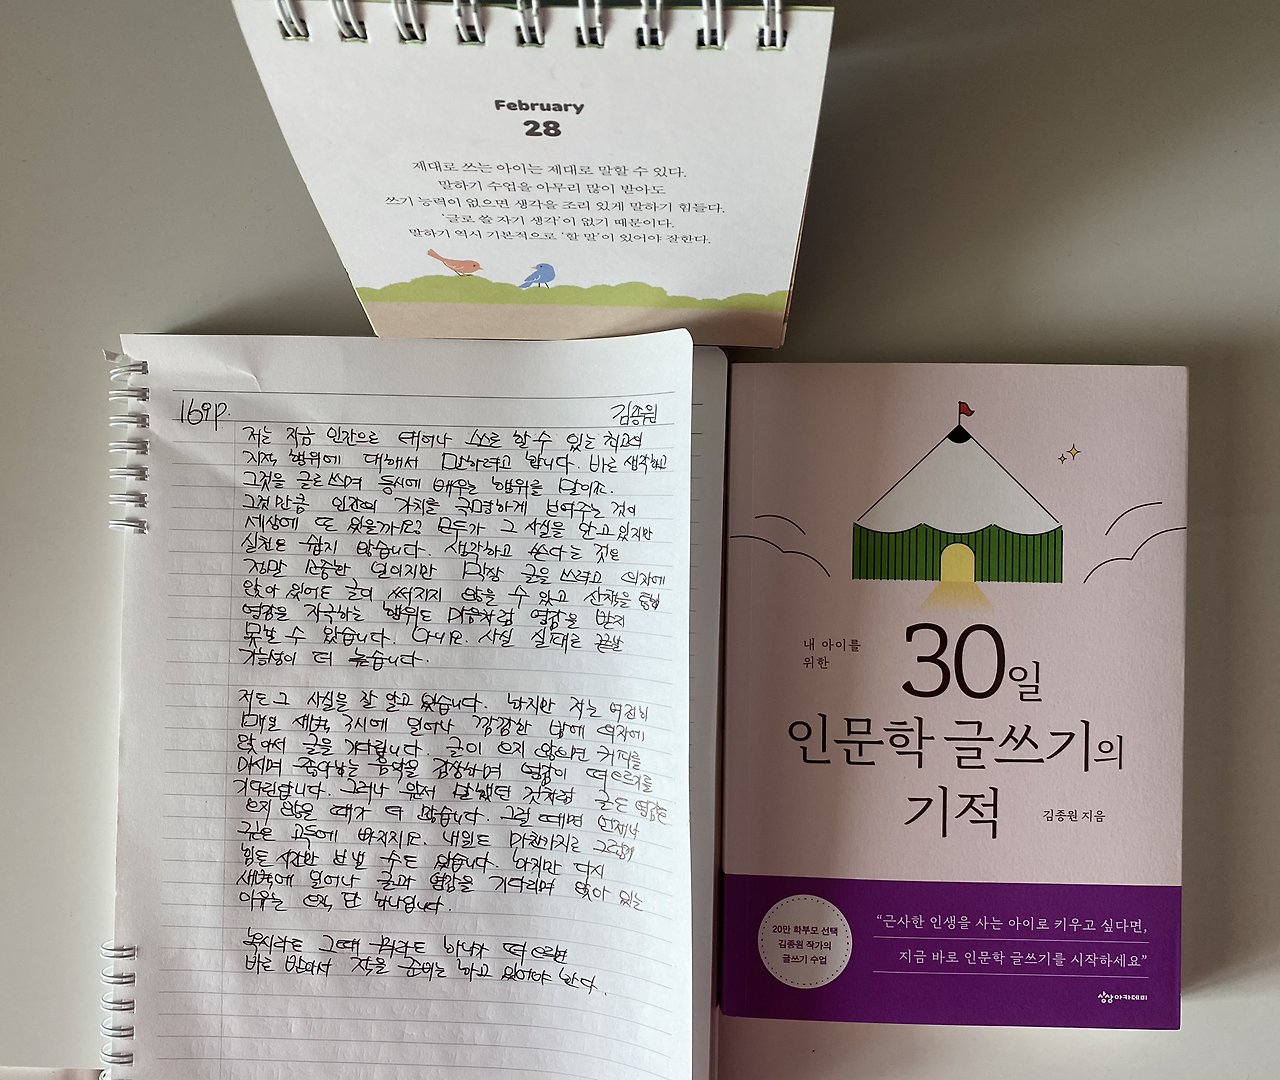 February
28
제대로 쓰는 아이는 제대로 말할 수 있다.
말하기 수업을 아무리 많이 받아도
쓰기 능력이 없으면 생각을 조리 있게 말하기 힘들다.
'글로 쓸 자기 생각'이 없기 때문이다.
말하기 역시 기본적으로 '할 말'이 있어야 잘한다.
169p.
김종원
저는 지금 인간으로 태어나 스스로 할 수 있는 최고의
지적 행위에 대해서 말하려고 합니다. 바로 생각하고
그것을 글로 쓰며 동시에 배우는 행위를 말이죠.
그것만큼 인간의 가치를 극명하게 보여주는 것이
세상에 또 있을까요? 모두가 그 사실을 알고 있지만
실천은 쉽지 않습니다. 생각하고 쓴다는 것은
정말 소중한 일이지만 막상 글을 쓰려고 의자에
앉아 있어도 글이 써지지 않을 수 있고 산책을 통해
영감을 자극하는 행위도 마음처럼 영감을 받지
못할 수 있습니다. 아니요. 사실 실패로 끝날
가능성이 더 높습니다.
저도 그 사실을 잘 알고 있습니다. 하지만 저는 여전히
매일 새벽 3시에 일어나 깜깜한 밤에 의자에
앉아서 글을 기다립니다. 글이 오지 않으면 커피를
마시며 좋아하는 음악을 감상하며 영감이 떠오르기를
기다립니다. 그러나 먼저 말했던 것처럼 글도 영감도
오지 않을 때가 더 많습니다. 그럴 때면 언제나
깊은 고독에 빠지지요. 내일도 마찬가지로 그렇게
힘든 시간만 보낼 수도 있습니다. 하지만 다시
새벽에 일어나 글과 영감을 기다리며 앉아 있는
이유는 오직 단 하나입니다.
혹시라도 그때 뭐라도 하나가 떠오르면
바로 받아서 적을 준비는 하고 있어야 한다.
내 아이를
위한
30일
인문학 글쓰기의
기적
김종원 지음
20만 학부모 선택
김종원 작가의
글쓰기 수업
“근사한 인생을 사는 아이로 키우고 싶다면,
지금 바로 인문학 글쓰기를 시작하세요”
상상아카데미